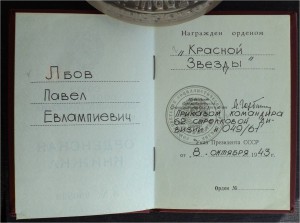 Львов
Павел
Евлампиевич
Награжден орденом
„Красной
Звезды"
Приказом командира
62 стрелковой ди-
визии №049/61
Указ Президента СССР
от „8 - октября 1943 г.
Орден №